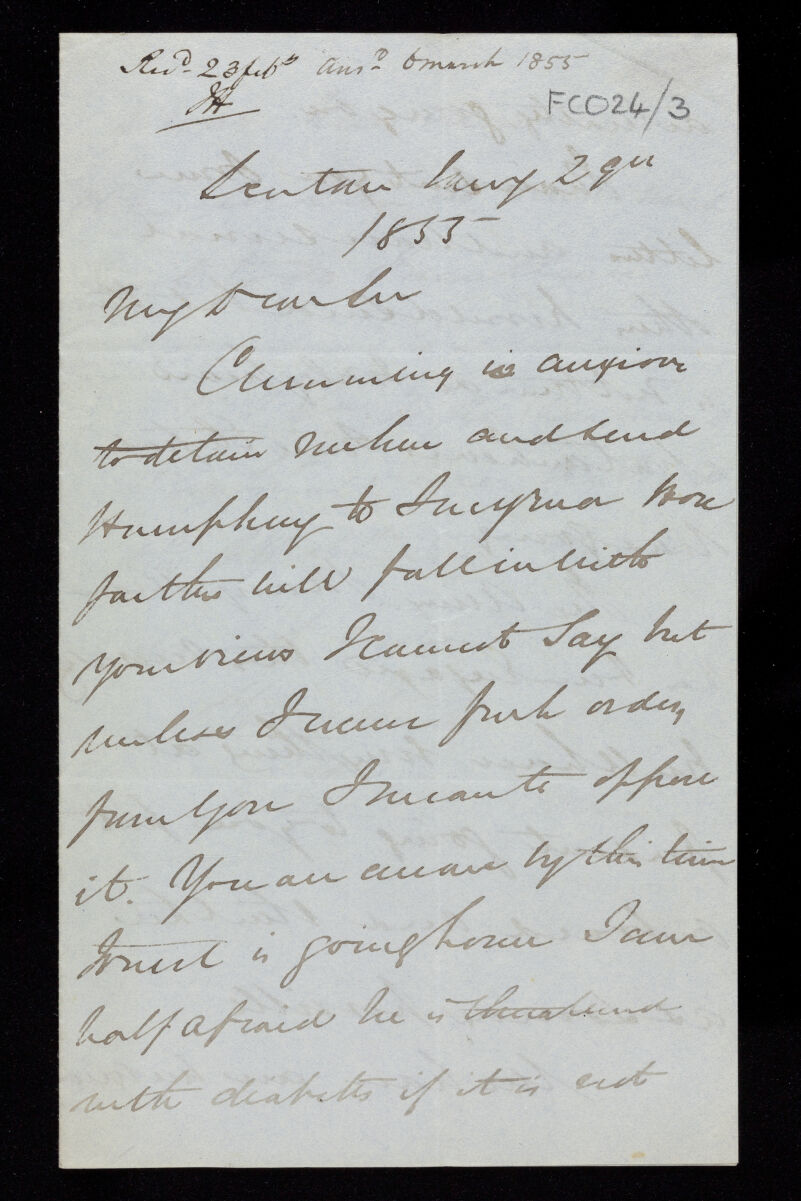 Recd. 23 febry ansd. 6 march 1855
JH
FCO24/3
Scutari 29th
1855
My Dear Sir
Cumming is anxious
to detain and send
Humphrey to Smyrna How
far this will fall in with
your views I cannot say but
unless I receive fresh orders
from you I mean to oppose
it. You are aware by this time
is going home I am
half afraid he is threatened
with diabetes if it is not